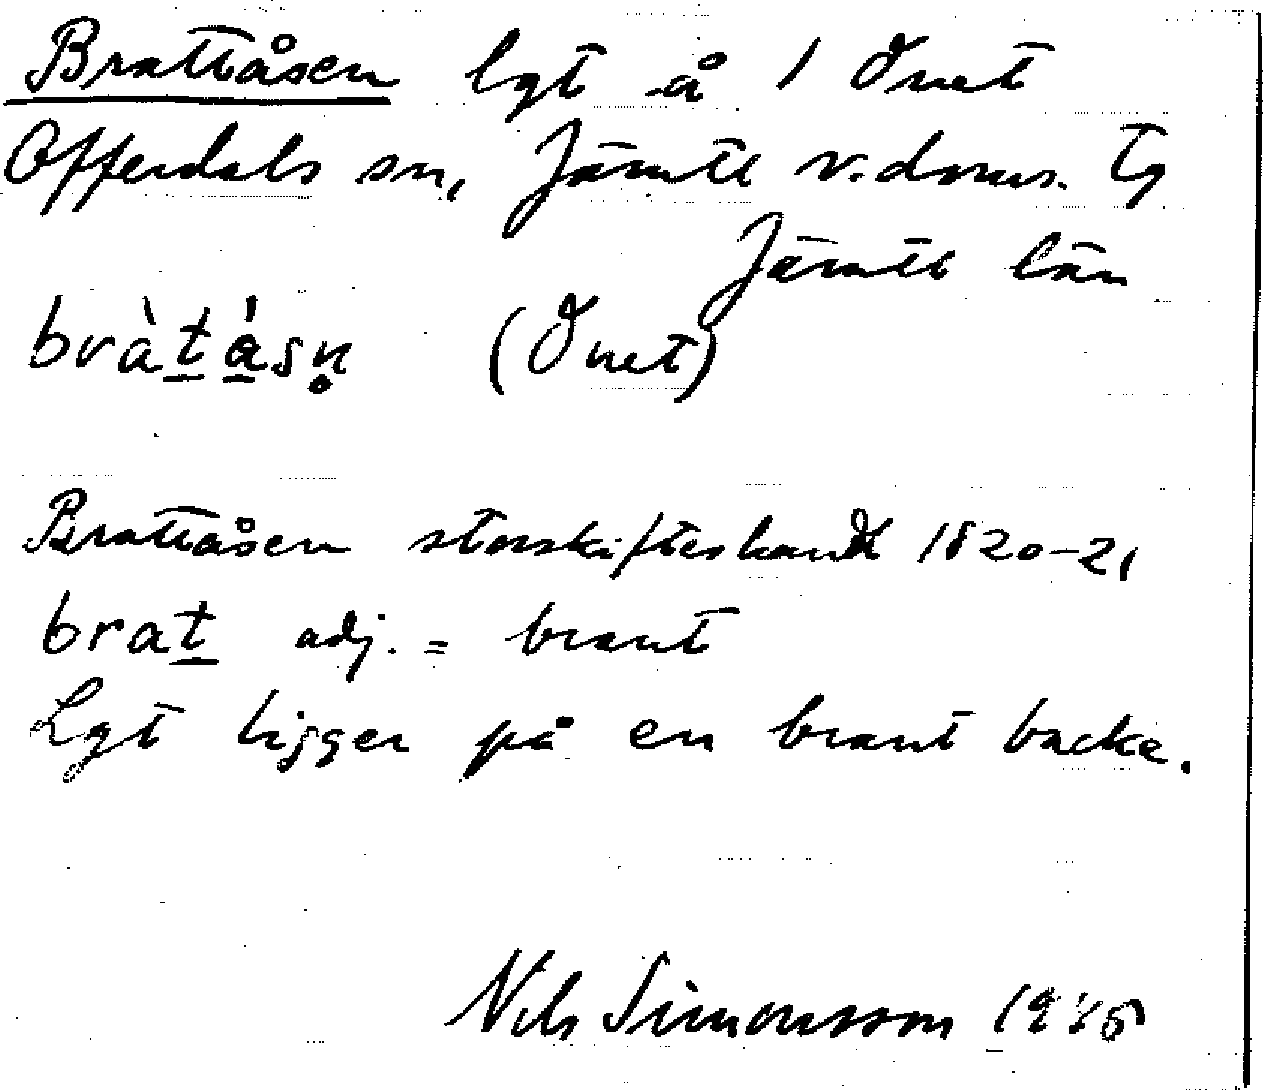 Brattåsen lgt å 1 Önet
Offerdals sn, Jämtl v. doms. tg
Jämtl län
bràtásn (Önet)
Brattåsen storskifteskarta 1820-21
brat adj. = brant
Lgt ligger på en brant backe.
Nils Simonsson